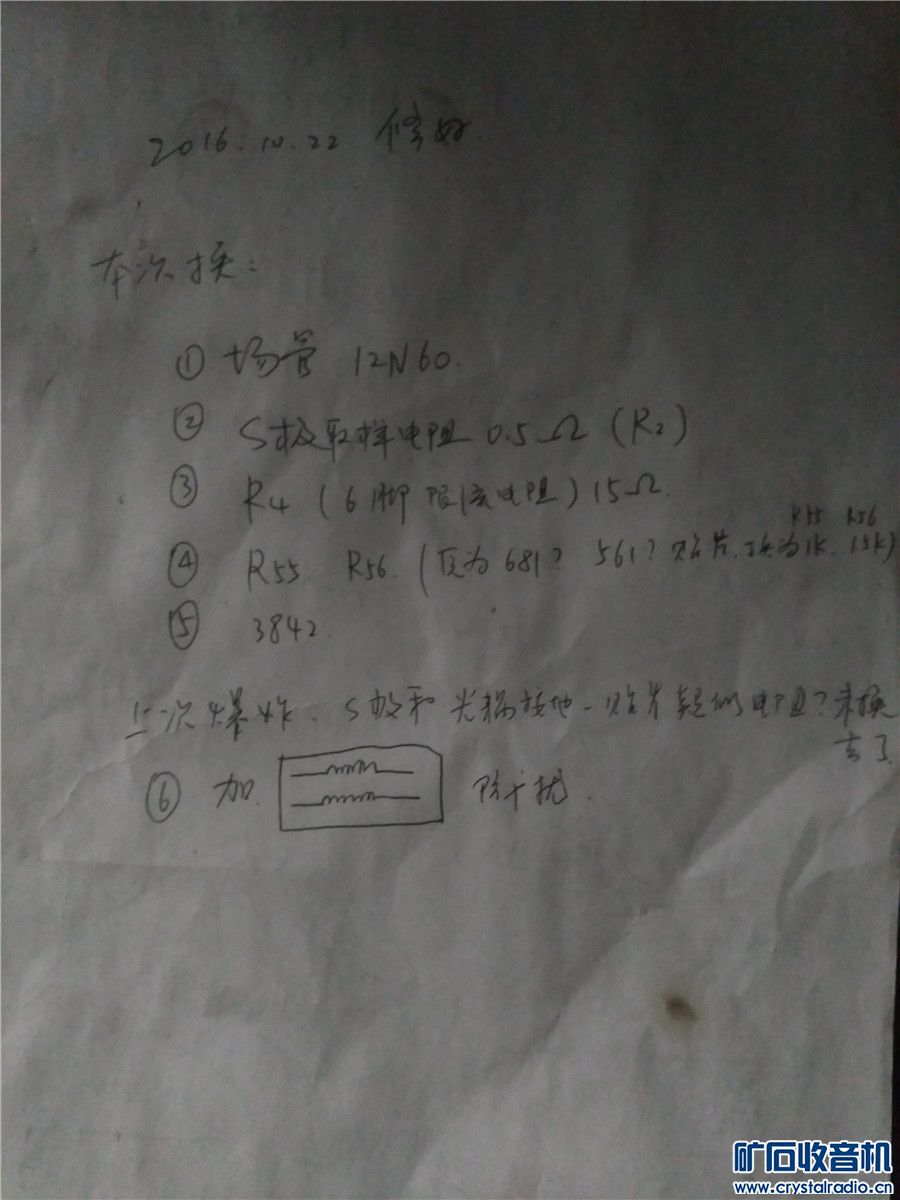 2016.10.22 修好
本次换:
① 场管 12N60.
② S极取样电阻 0.5Ω (R2)
③ R4 (6脚限流电阻) 15Ω.
R55 R56
④ R55 R56. (原为 681? 561? 贴片, 换为 1K. 15K)
⑤ 3842.
上次爆炸. S极和光耦接地一贴片疑似电阻? 未换
⑥ 加. 除干扰.
矿石收音机
www.crystalradio.cn